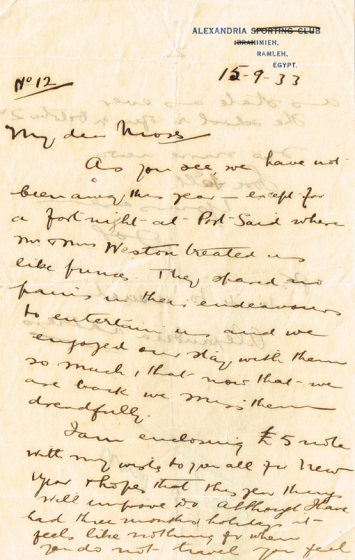 ALEXANDRIA SPORTING CLUB
IBRAHIMIEH,
RAMLEH,
EGYPT.
15-9-33
No 12
My dear Moses
As you see, we have not
been away this year – except for
a fortnight at Port-Said where
Mr & Mrs Weston treated us
like princes. They spared no
pains in their endeavours
to entertain us and we
enjoyed our stay with them
so much, that now that we
are back we miss them
dreadfully.
I am enclosing £5 note
with my wishes to you all for New
Year & hopes that this year things
will improve. Do although I have
had three months holidays it
feels like nothing for when
you do not travel you feel